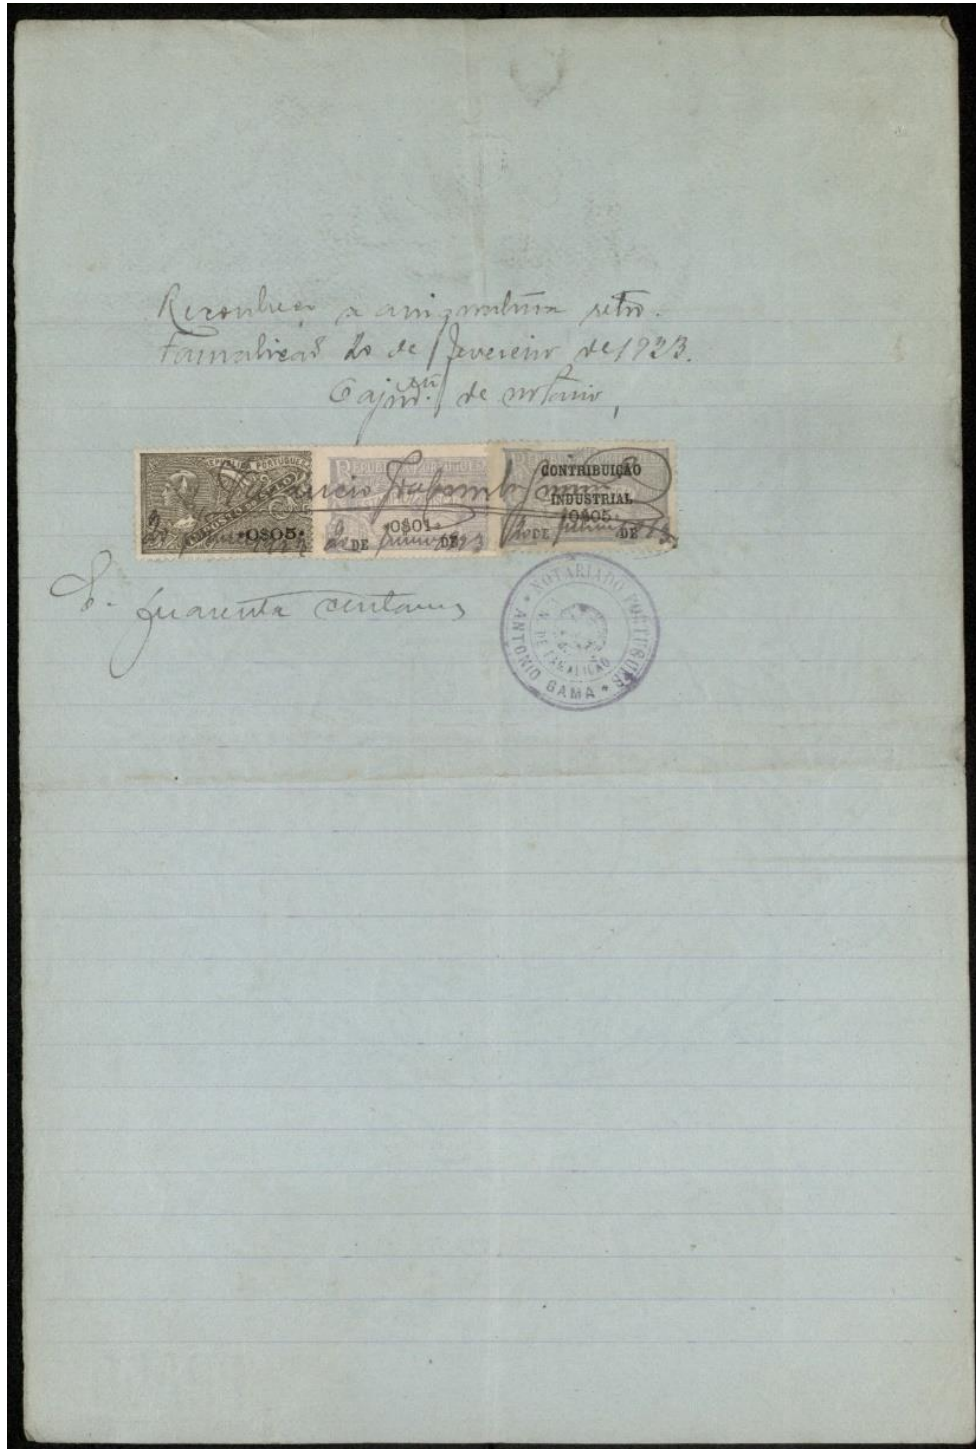 Reconheço a assignatura retro.
Famalicão 20 de fevereiro de 1923.
O ajud.te de notario,
REPUBLICA PORTUGUESA
REPUBLICA PORTUGUESA
CONTRIBUIÇÃO
INDUSTRIAL
•0$05•
•0$01•
•0$05•
DE DE
DE DE
quarenta centavos
NOTARIADO PORTUGUÊS
ANTONIO GAMA